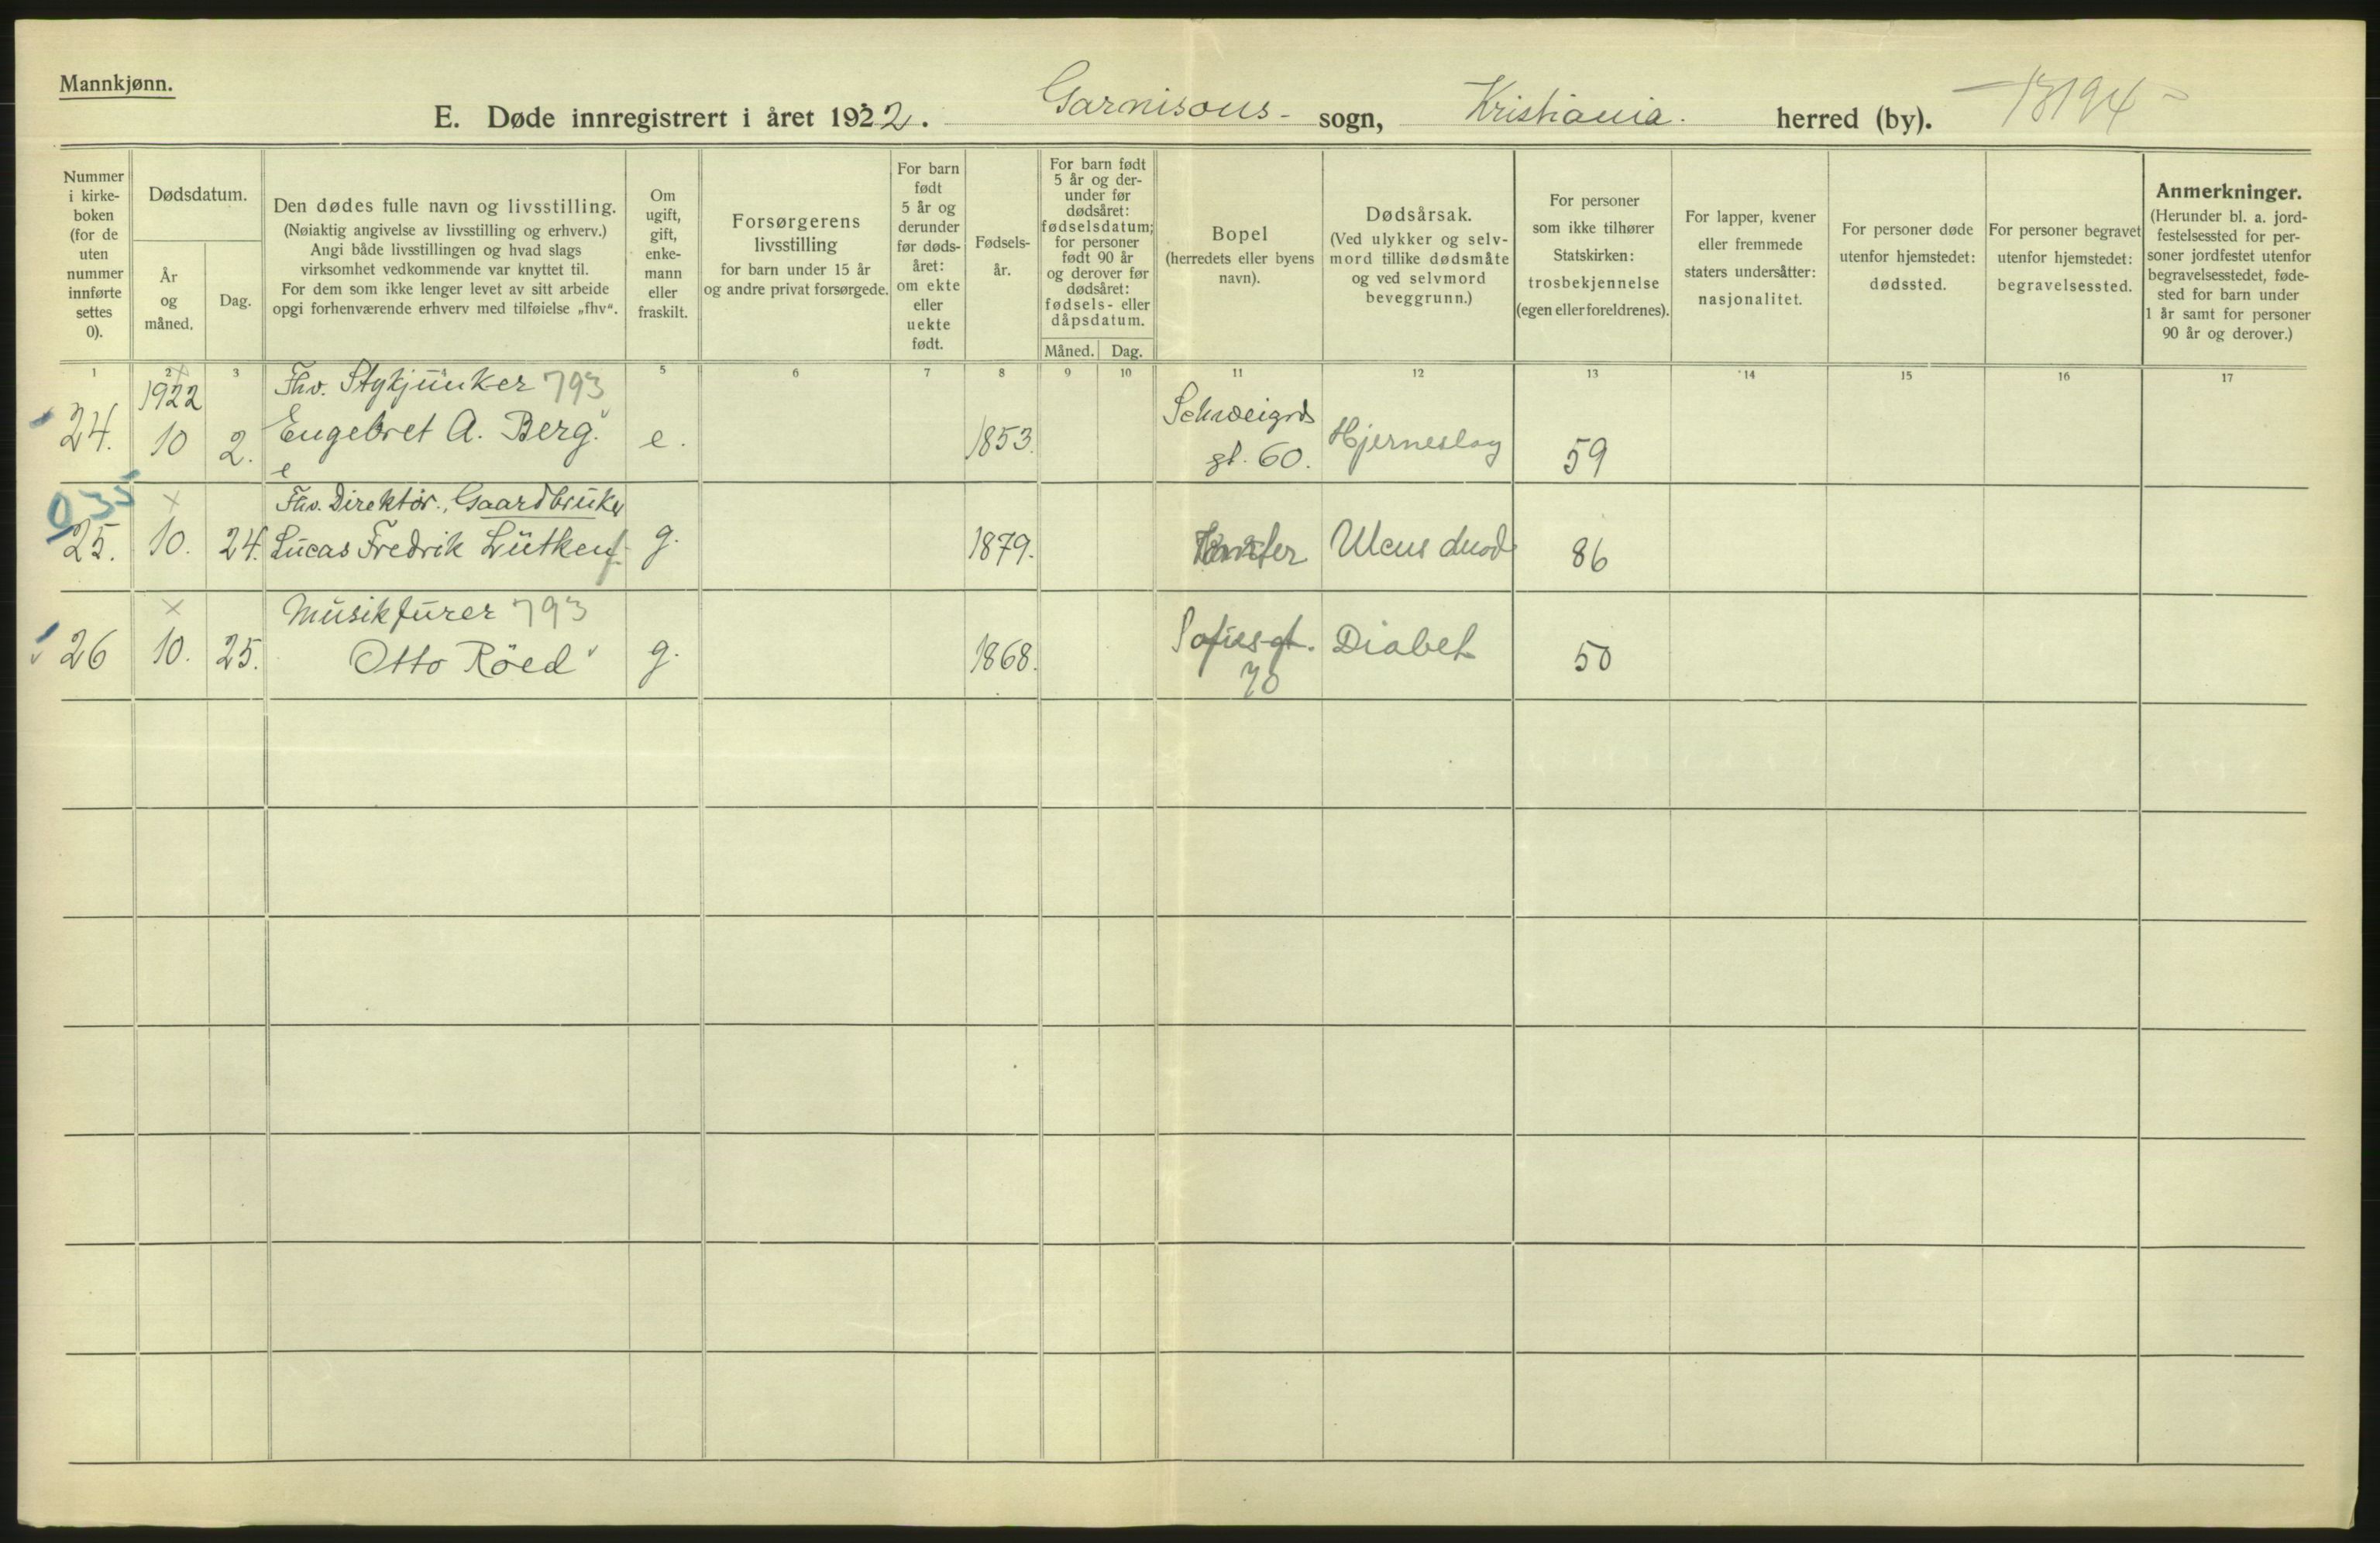 Mannkjønn.
E. Døde innregistrert i året 1922. Garnisons- sogn, Kristiania. herred (by).
Nummer i kirke-boken (for de uten nummer innførte settes 0).
Dødsdatum.
År og måned.
Dag.
Den dødes fulle navn og livsstilling.
(Nøiaktig angivelse av livsstilling og erhverv.)
Angi både livsstillingen og hvad slags
virksomhet vedkommende var knyttet til.
For dem som ikke lenger levet av sitt arbeide
opgi forhenværende erhverv med tilføielse „fhv“.
Om ugift, gift, enke-mann eller fraskilt.
Forsørgerens livsstilling
for barn under 15 år
og andre privat forsørgede.
For barn født 5 år og derunder før døds-året: om ekte eller uekte født.
Fødsels-år.
For barn født 5 år og der-under før dødsåret: fødselsdatum; for personer født 90 år og derover før dødsåret: fødsels- eller dåpsdatum.
Måned. Dag.
Bopel
(herredets eller byens navn).
Dødsårsak.
(Ved ulykker og selv-mord tillike dødsmåte og ved selvmord beveggrunn.)
For personer som ikke tilhører Statskirken: trosbekjennelse (egen eller foreldrenes).
For lapper, kvener eller fremmede staters undersåtter: nasjonalitet.
For personer døde utenfor hjemstedet: dødssted.
For personer begravet utenfor hjemstedet: begravelsessted.
Anmerkninger.
(Herunder bl. a. jord-festelsessted for per-soner jordfestet utenfor begravelsesstedet, føde-sted for barn under 1 år samt for personer 90 år og derover.)
1 2 3 5 6 7 8 9 10 11 12 13 14 15 16 17
1922 Fhv. Stykjunker 793
24. 10 2. Engebret A. Berg. e. 1853. Schweigrds gt. 60. Hjerneslag 59
e
035 × Fhv. Direktör., Gaardbruker
25. 10. 24. Lucas Fredrik g. 1879. Ulcus duod 86
× Musikfurer 793
26 10. 25. Otto Röed g. 1868. Sofiesgt. 70 Diabet 50